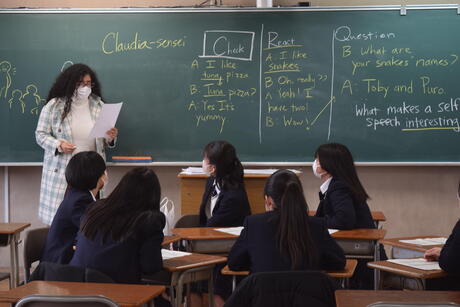 Claudia-sensei
Check
A: I like
tuna pizza
B: Tuna pizza?
A: Yes It's
yummy
React
A: I like
snakes
B: Oh really?
A: Yeah! I
have two!
B: Wow!
Question
B: What are
your snakes' names?
A: Toby and Puro.
What makes a self
speech interesting